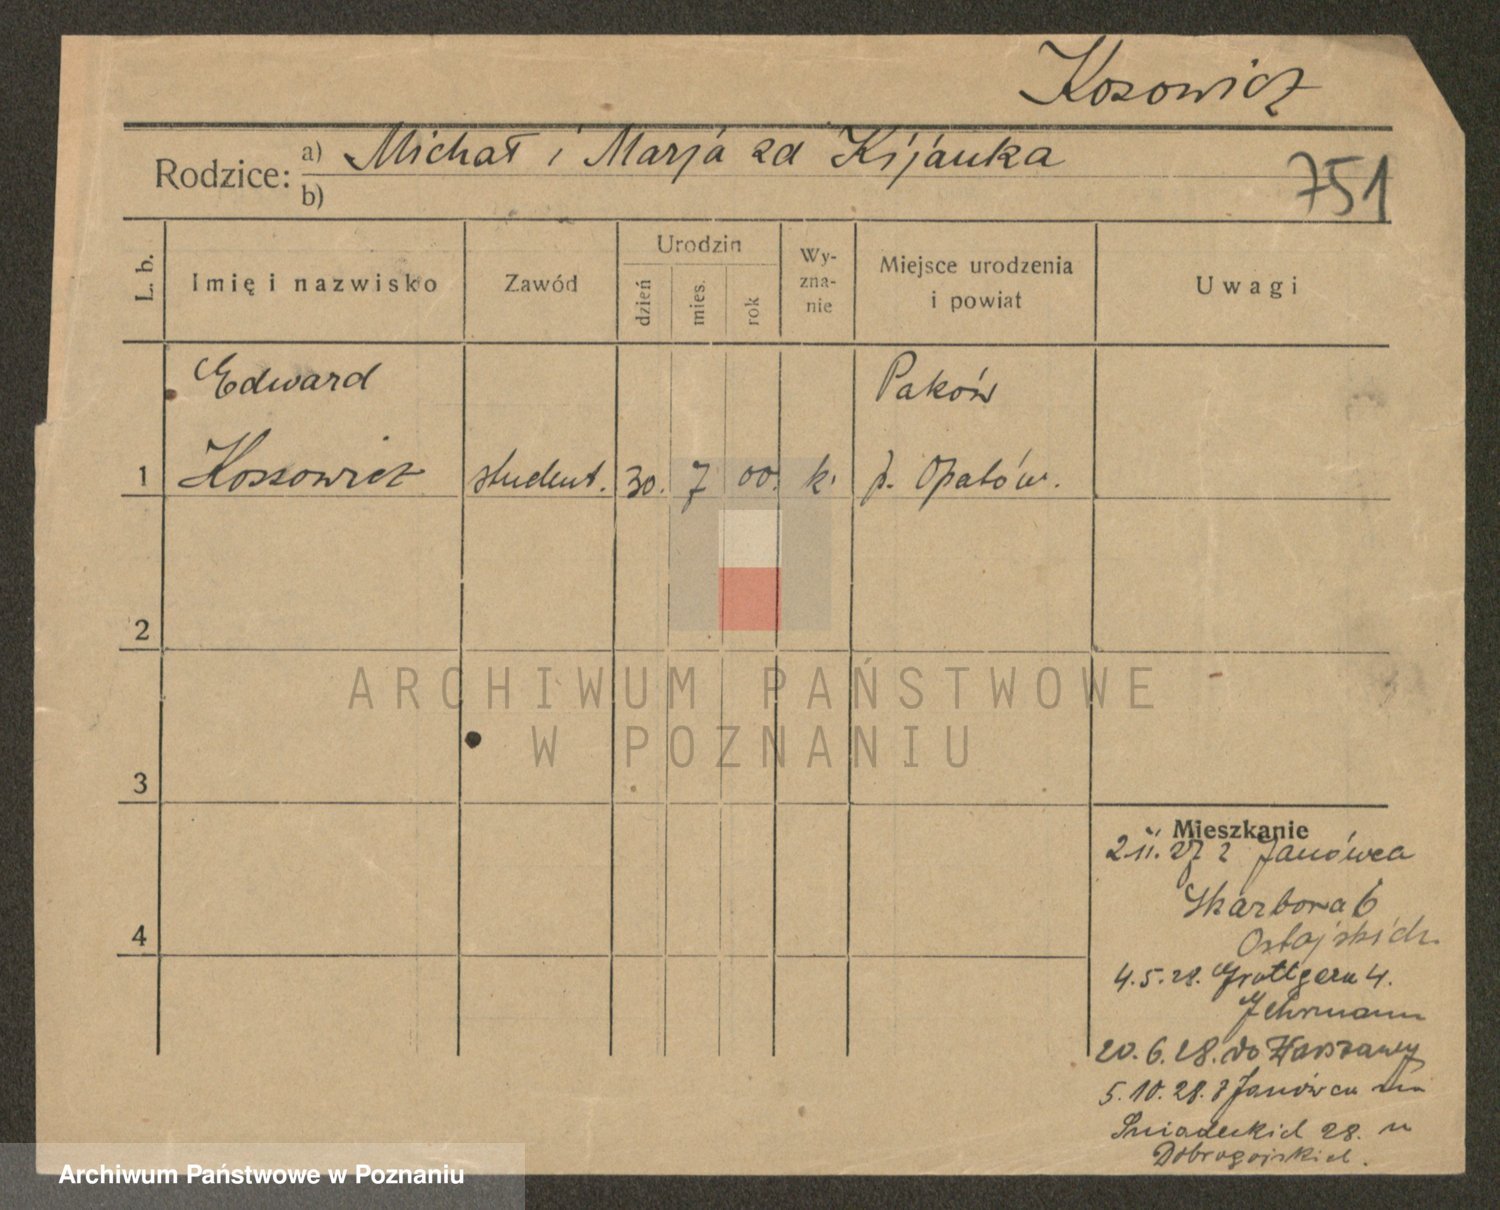 Kosowicz
Rodzice: a) Michał i Marja zd Kijanka
b)
751
L. b.
Imię i nazwisko
Zawód
Urodzin
dzień
mies.
rok
Wy-
zna-
nie
Miejsce urodzenia
i powiat
Uwagi
Edward
Paków
1 Kossowicz student. 30. 7 00. k. p. Opatów.
2
ARCHIWUM PAŃSTWOWE
W POZNANIU
3
Mieszkanie
2.II.27 z Janówca
Skarbowa 6
4
4.5.28. Grottgera 4.
Jehrmann
20.6.28. do Warszawy
5.10.28. z Janówca na
Śniadeckich 28. u
Dobrogojskich.
Archiwum Państwowe w Poznaniu